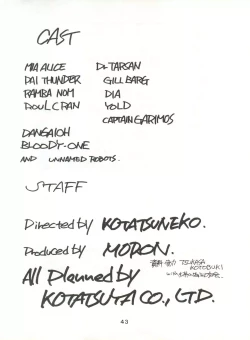 CAST
MIA ALICE Dr. TARSAN
PAI THUNDER GILL BARG
RAMBA NOM DIA
ROUL CRAN YOLD
CAPTAIN GARIMOS
DANGAIOH
BLOODY-ONE
AND UNNAMED ROBOTS.
STAFF
Directed by KOTATSUNEKO.
Produced by MORON.
TSUKASA
KOTOBUKI
with
All Planned by
KOTATSUYA CO., LTD.
43